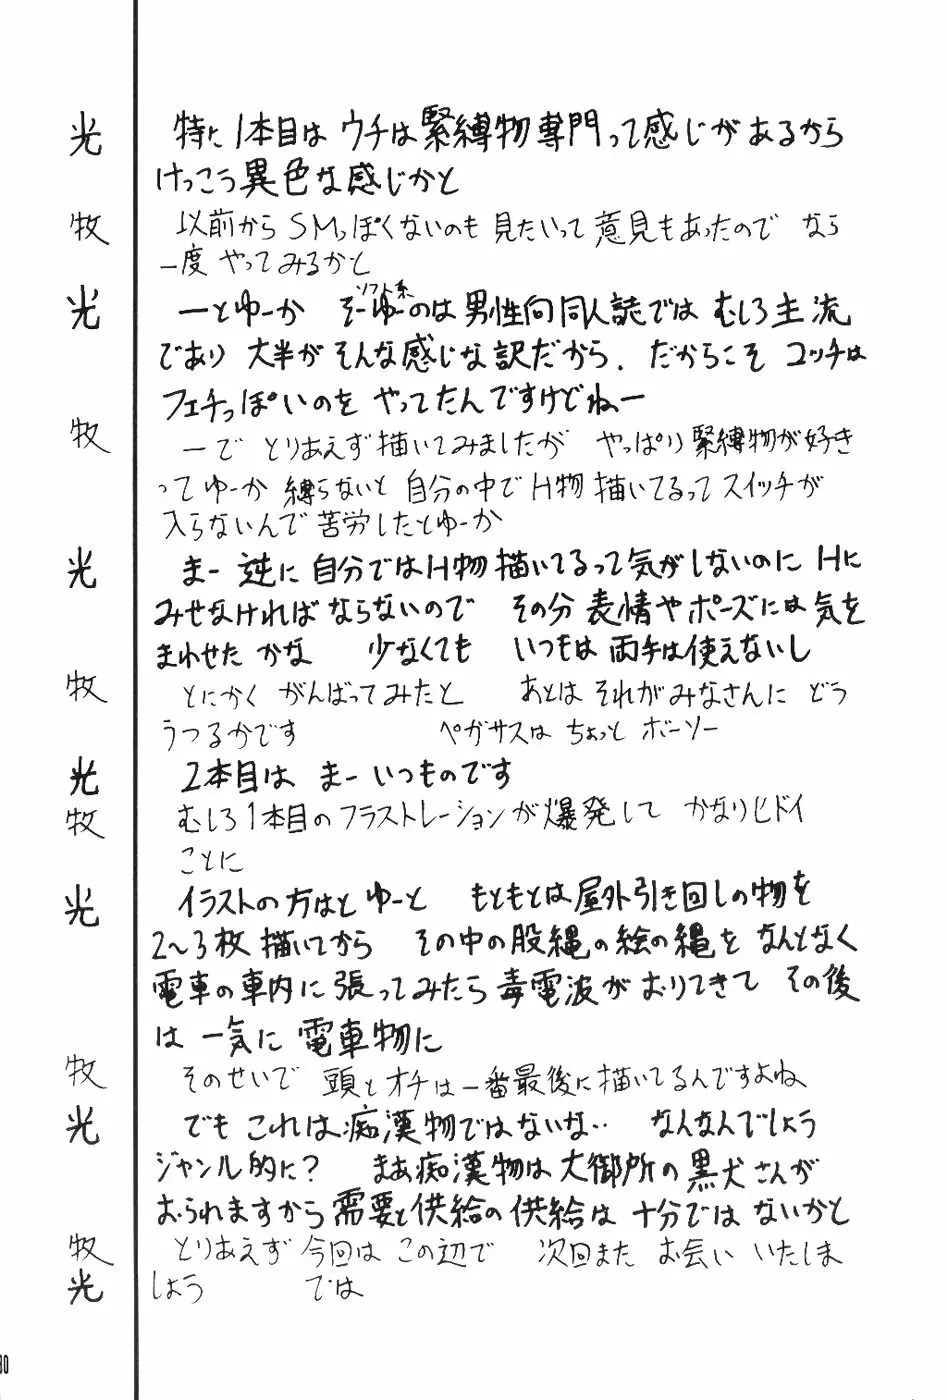 光 特に1本目は ウチは緊縛物専門って感じがあるから
けっこう異色な感じかと
牧 以前からSMっぽくないのも見たいって意見もあったので なら
一度やってみるかと
光 ーとゆーか そーゆーのは男性向同人誌では むしろ主流
ソフト系
であり 大半がそんな感じな訳だから. だからこそ コッチは
フェチっぽいのを やってたんですけどねー
牧 ーで とりあえず描いてみましたが やっぱり緊縛物が好き
ってゆーか 縛らないと 自分の中でH物描いてるってスイッチが
入らないんで苦労したとゆーか
光 まー 逆に自分ではH物描いてるって気がしないのに Hに
みせなければならないので その分 表情やポーズには気を
まわせた かな 少なくても いつもは両手は使えないし
牧 とにかく がんばってみたと あとはそれがみなさんに どう
うつるかです ペガサスは ちょっと ボーソー
光 2本目は まー いつものです
牧 むしろ1本目のフラストレーションが爆発して かなりヒドイ
ことに
光 イラストの方はと ゆーと もともとは屋外引き回しの物を
2〜3枚 描いてから その中の股縄の絵の縄を なんとなく
電車の車内に張ってみたら毒電波がおりてきて その後
は 一気に 電車物に
牧 そのせいで 頭とオチは一番最後に描いてるんですよね
光 でも これは痴漢物ではないな‥ なんなんでしょう
ジャンル的に? まあ痴漢物は大御所の黒犬さんが
おられますから需要と供給の供給は 十分ではないかと
牧 とりあえず今回は この辺で 次回また お会い いたしま
光 しょう では
30